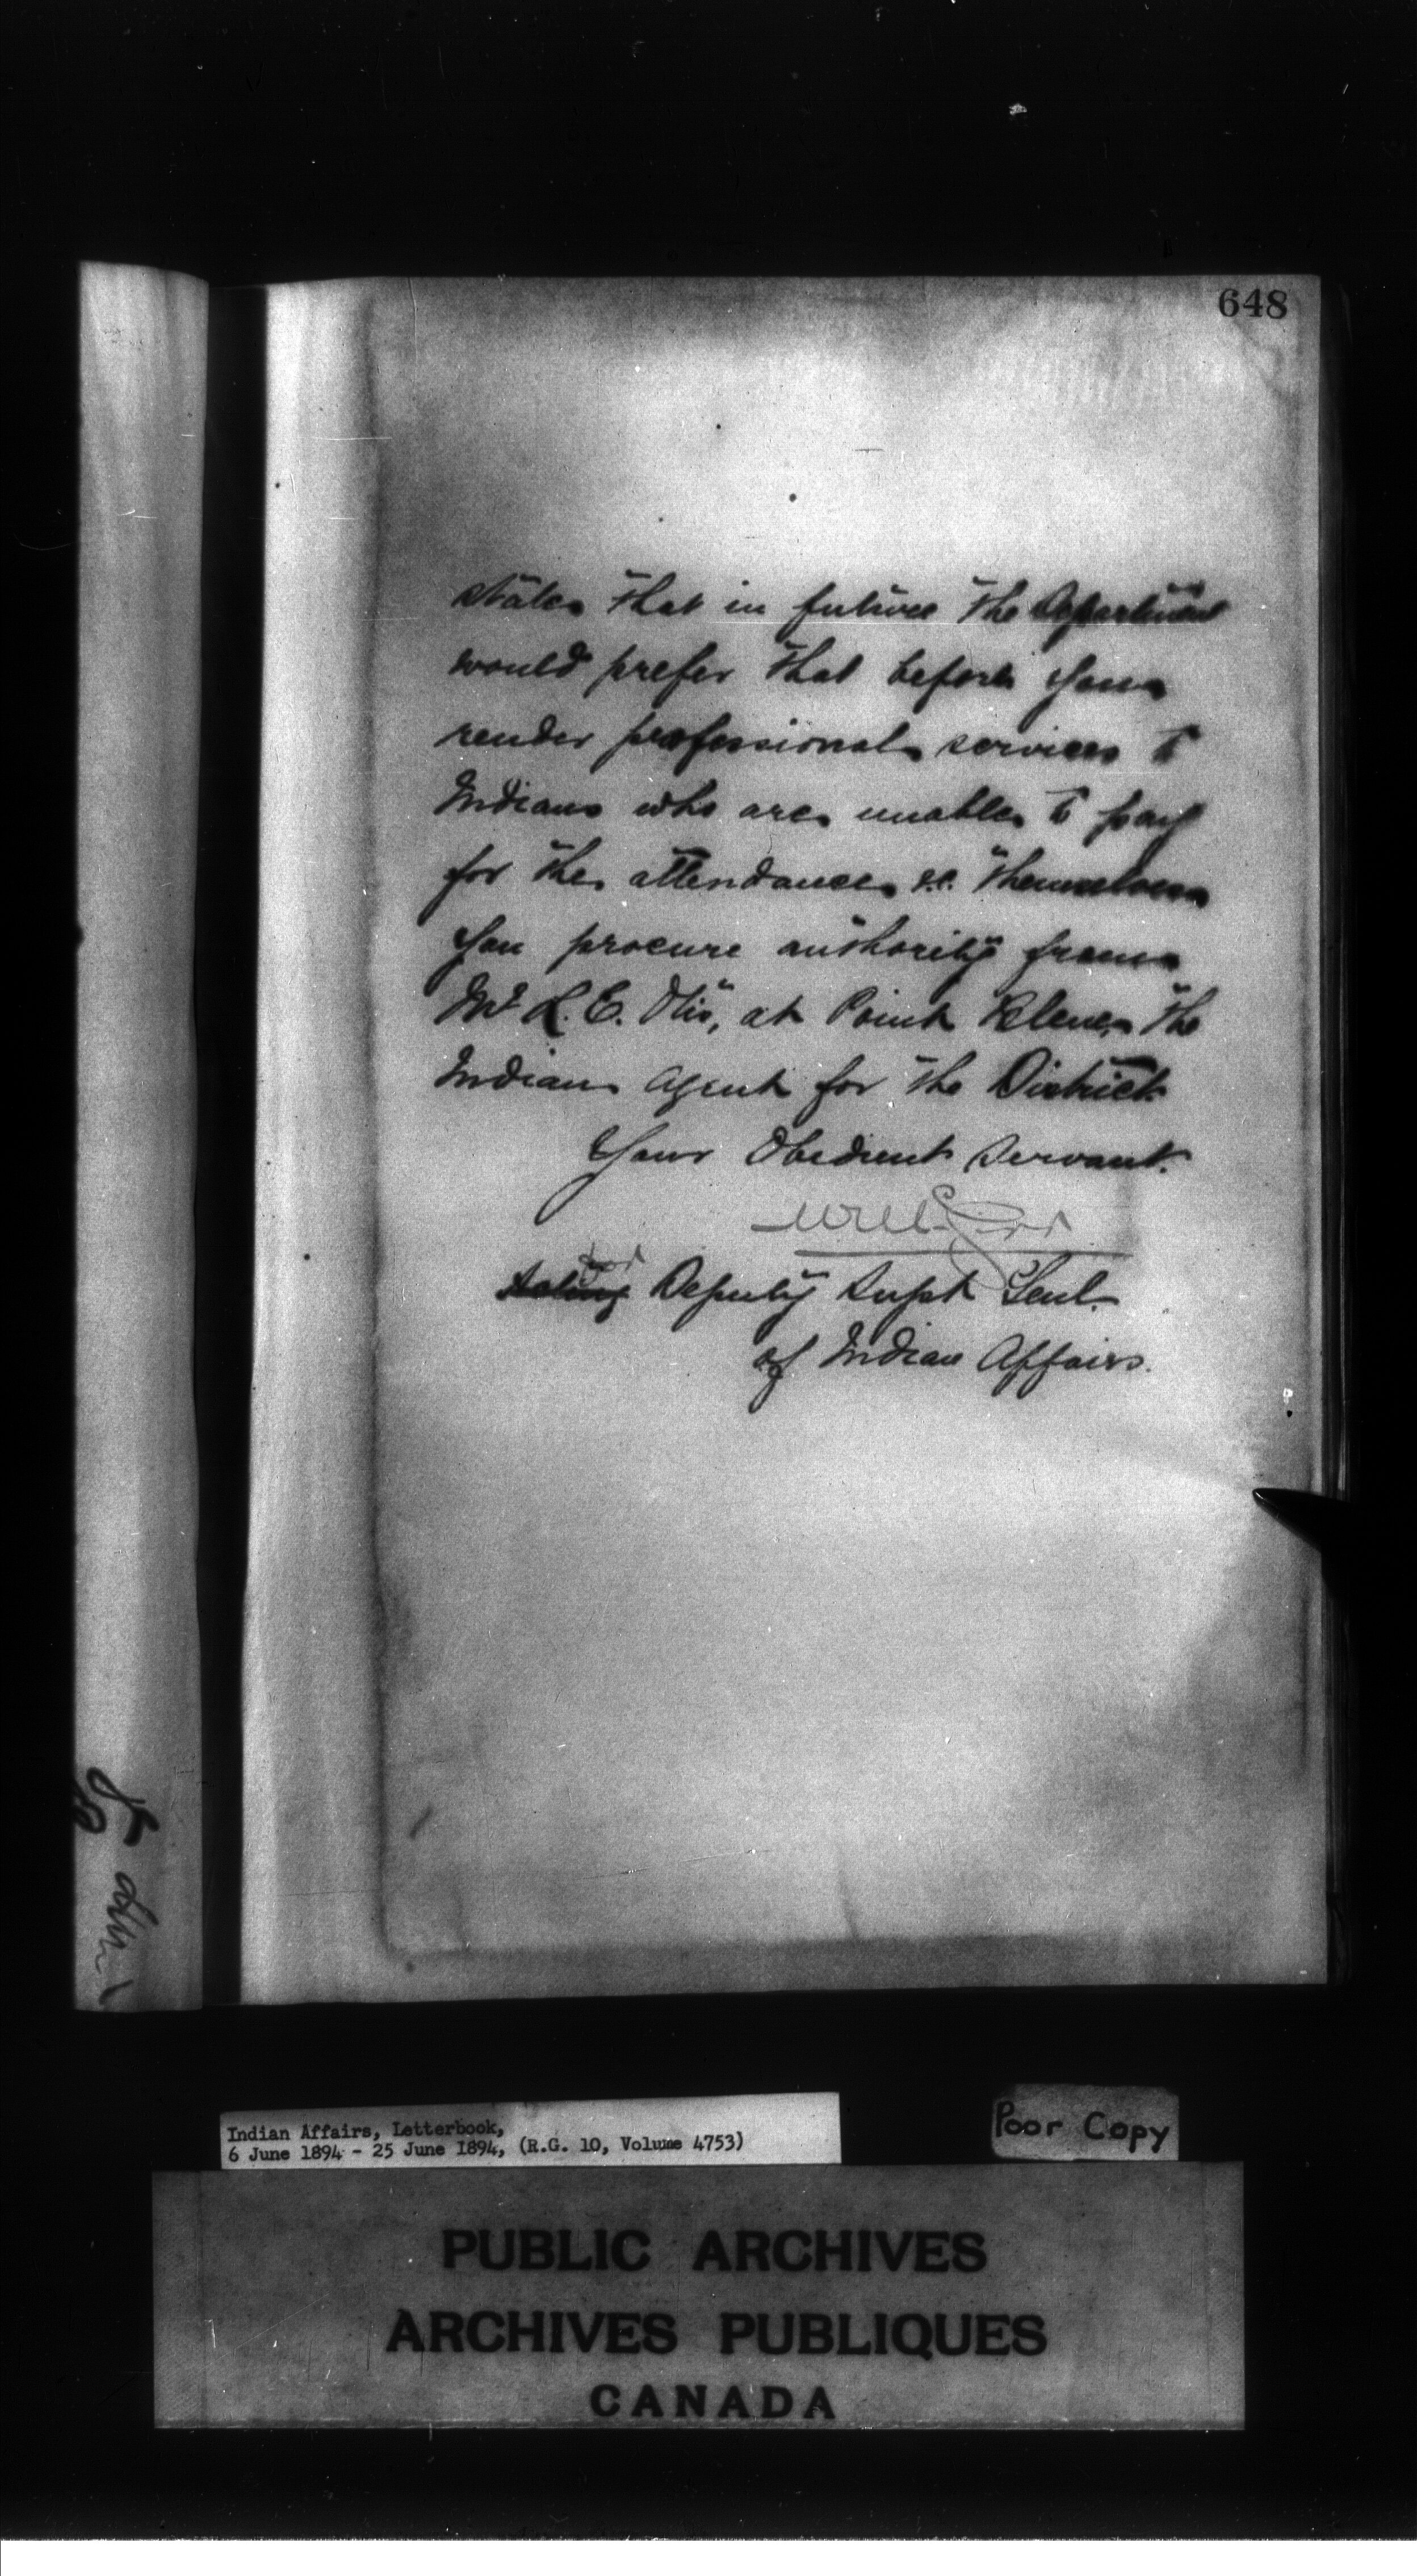 648
states that in future the Department
would prefer that before you
render professional services to
Indians who are unable to pay
for the attendance &c. themselves
you procure authority from
Mr L. E. Otis, at Point Bleue, the
Indian Agent for the District
Your Obedient Servant.
for
Acting Deputy Supt Genl.
of Indian Affairs.
Indian Affairs, Letterbook,
6 June 1894 - 25 June 1894, (R.G. 10, Volume 4753)
Poor Copy
PUBLIC ARCHIVES
ARCHIVES PUBLIQUES
CANADA